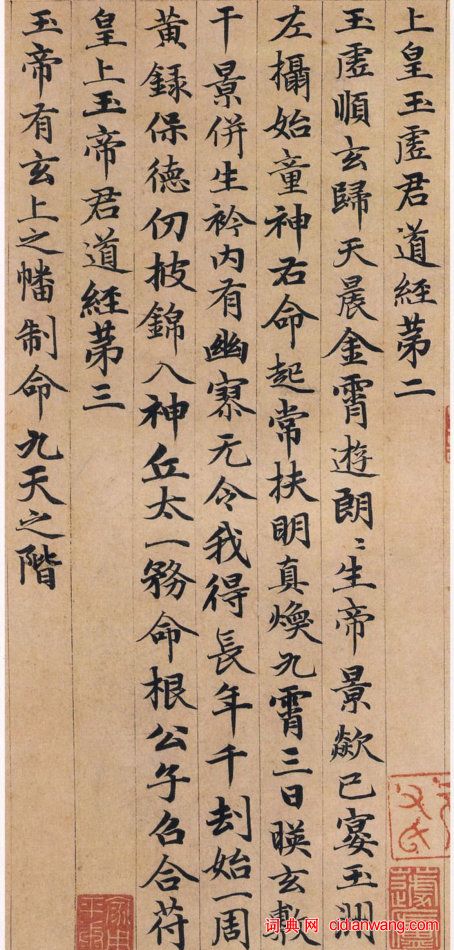 上皇玉虛君道經第二
玉虛順玄歸天晨金霄遊朗〻生帝景欻已宴玉州
左攝始童神右命起常扶明真煥九霄三日暎玄敷
千景併生衿内有幽寥无令我得長年千劫始一周
黄録保德仞披錦入神丘太一務命根公子召合苻
皇上玉帝君道經第三
玉帝有玄上之幡制命九天之階
词典网 cidianwang.com